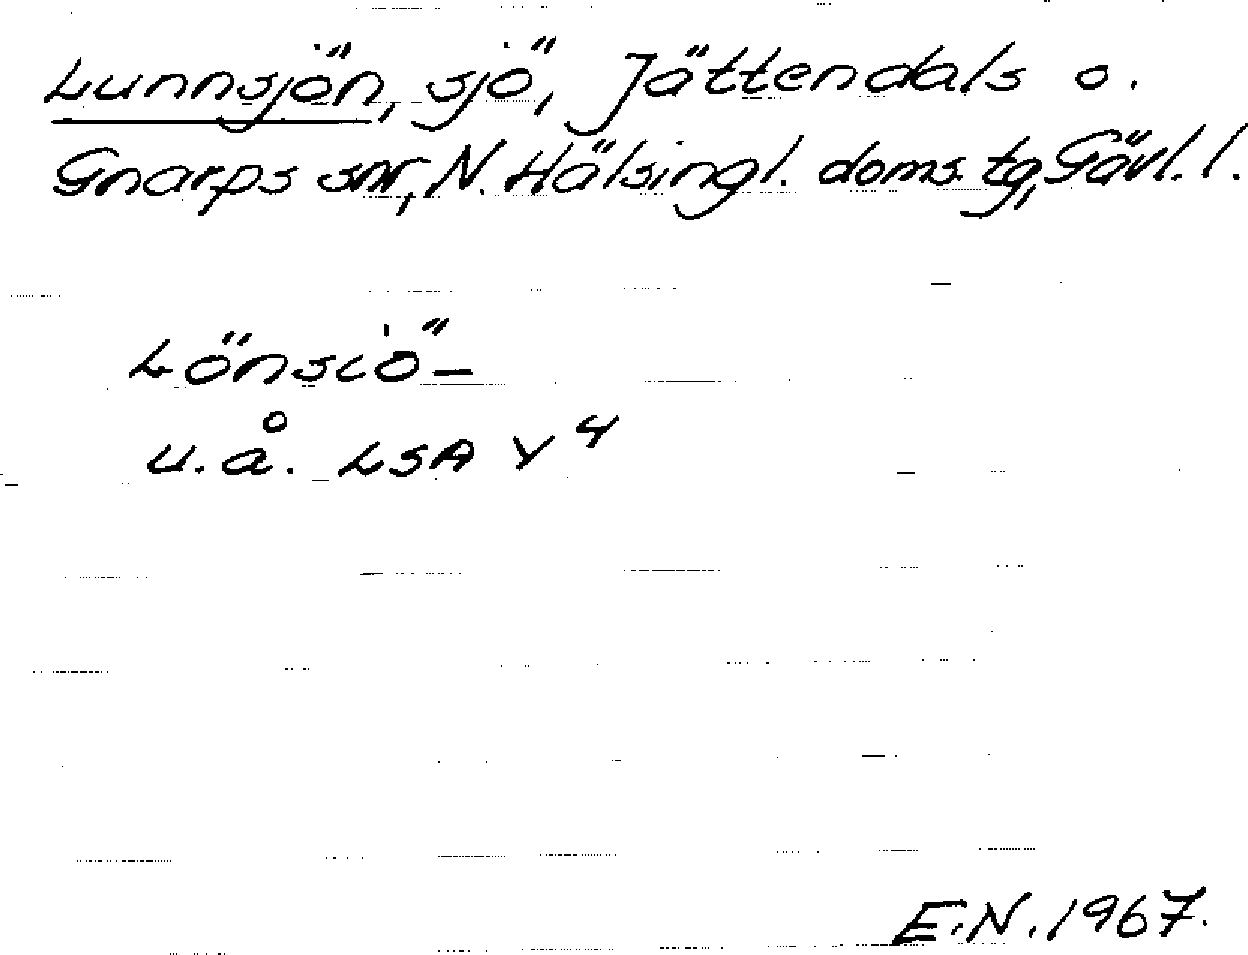 Lunnsjön, sjö, Jättendals o.
Gnarps snr, N. Hälsingl. doms. tg, Gävl. l.
Lönsiö-
u.å. LSA V 4
E.N. 1967.